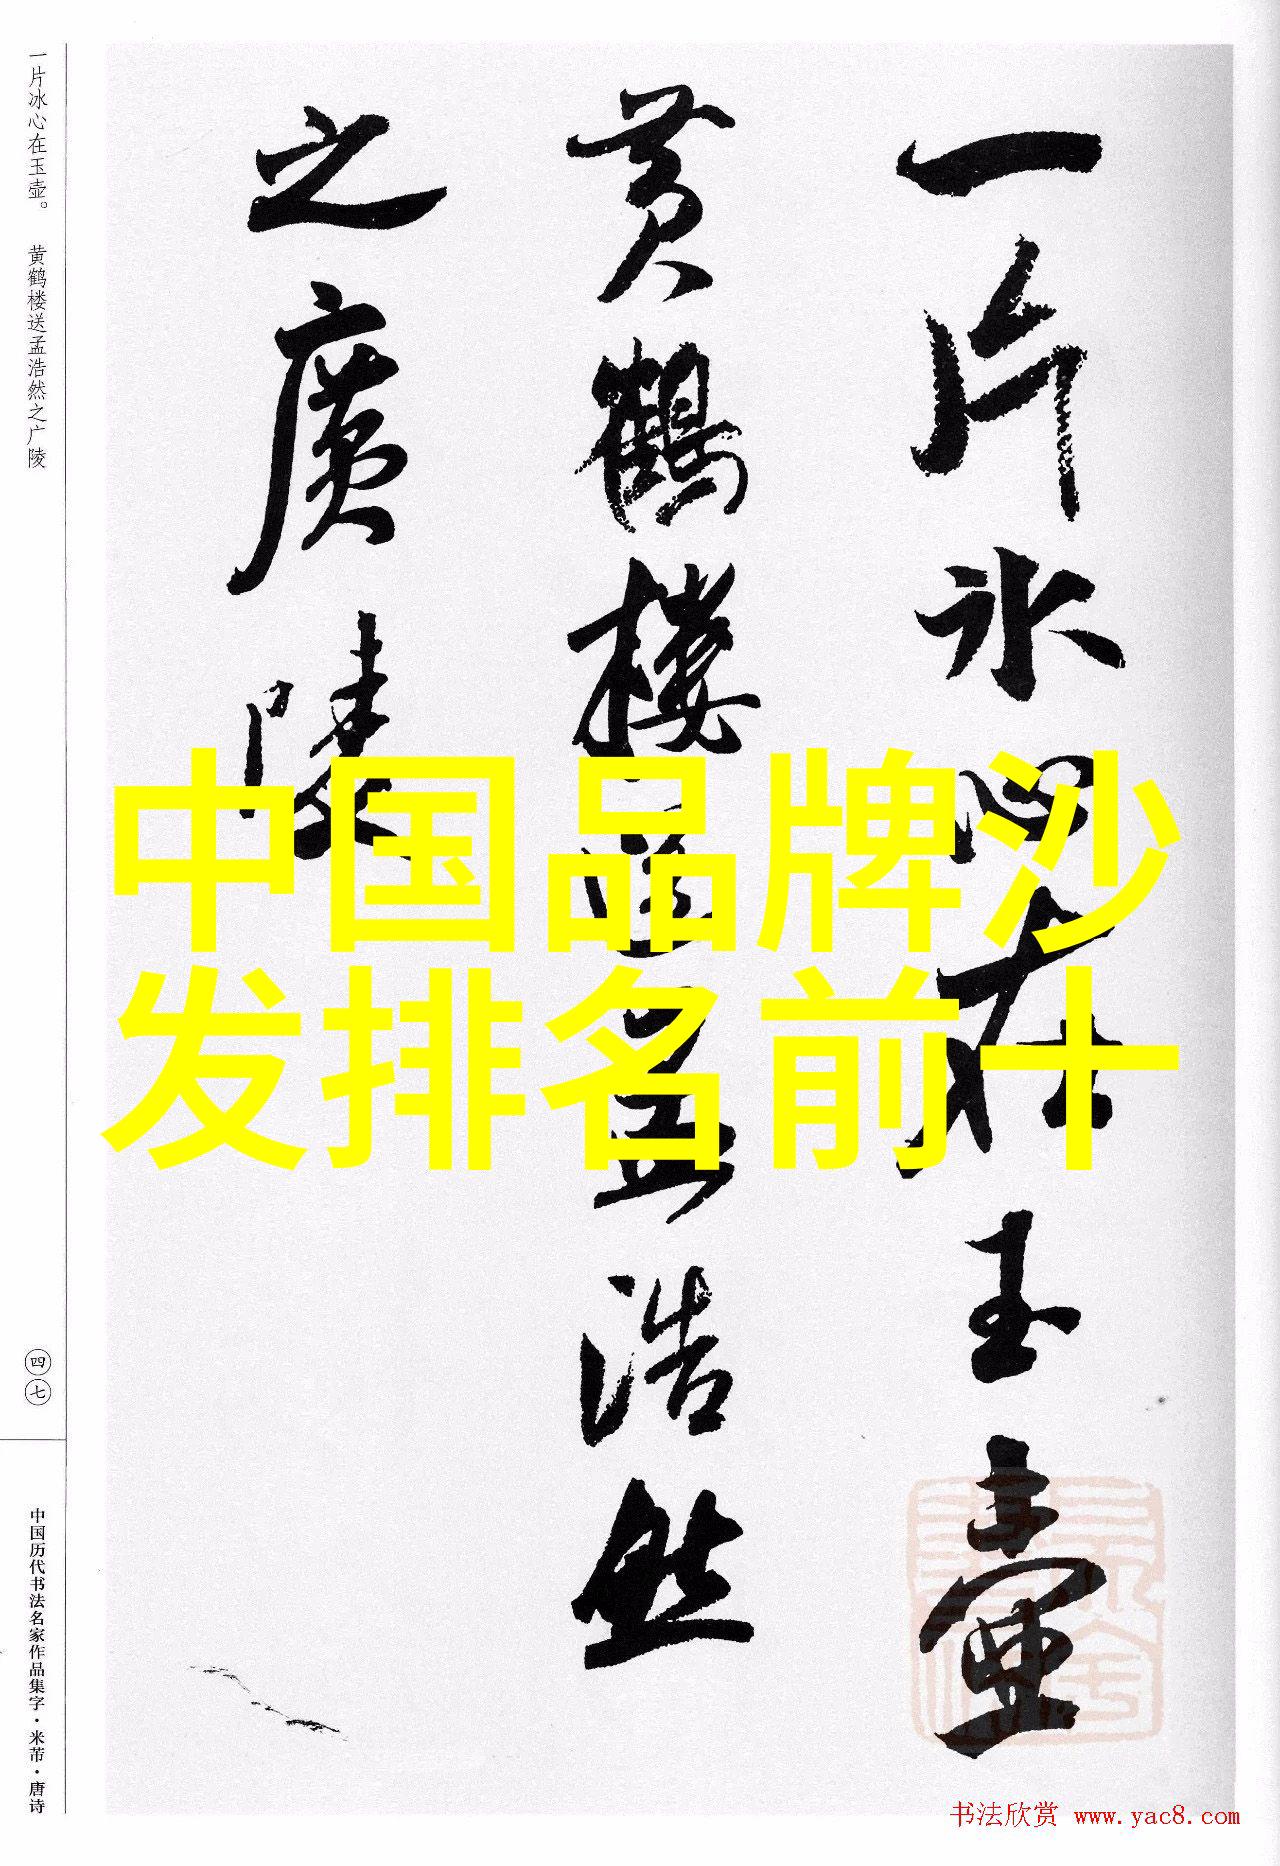 一片冰心在玉壶
黄鹤楼送孟浩然
之广陵
中国品牌沙
发排名前十
一片冰心在玉壶。 黄鹤楼送孟浩然之广陵
四七
中国历代书法名家作品集字·米芾·唐诗
书法欣赏 www.yac8.com